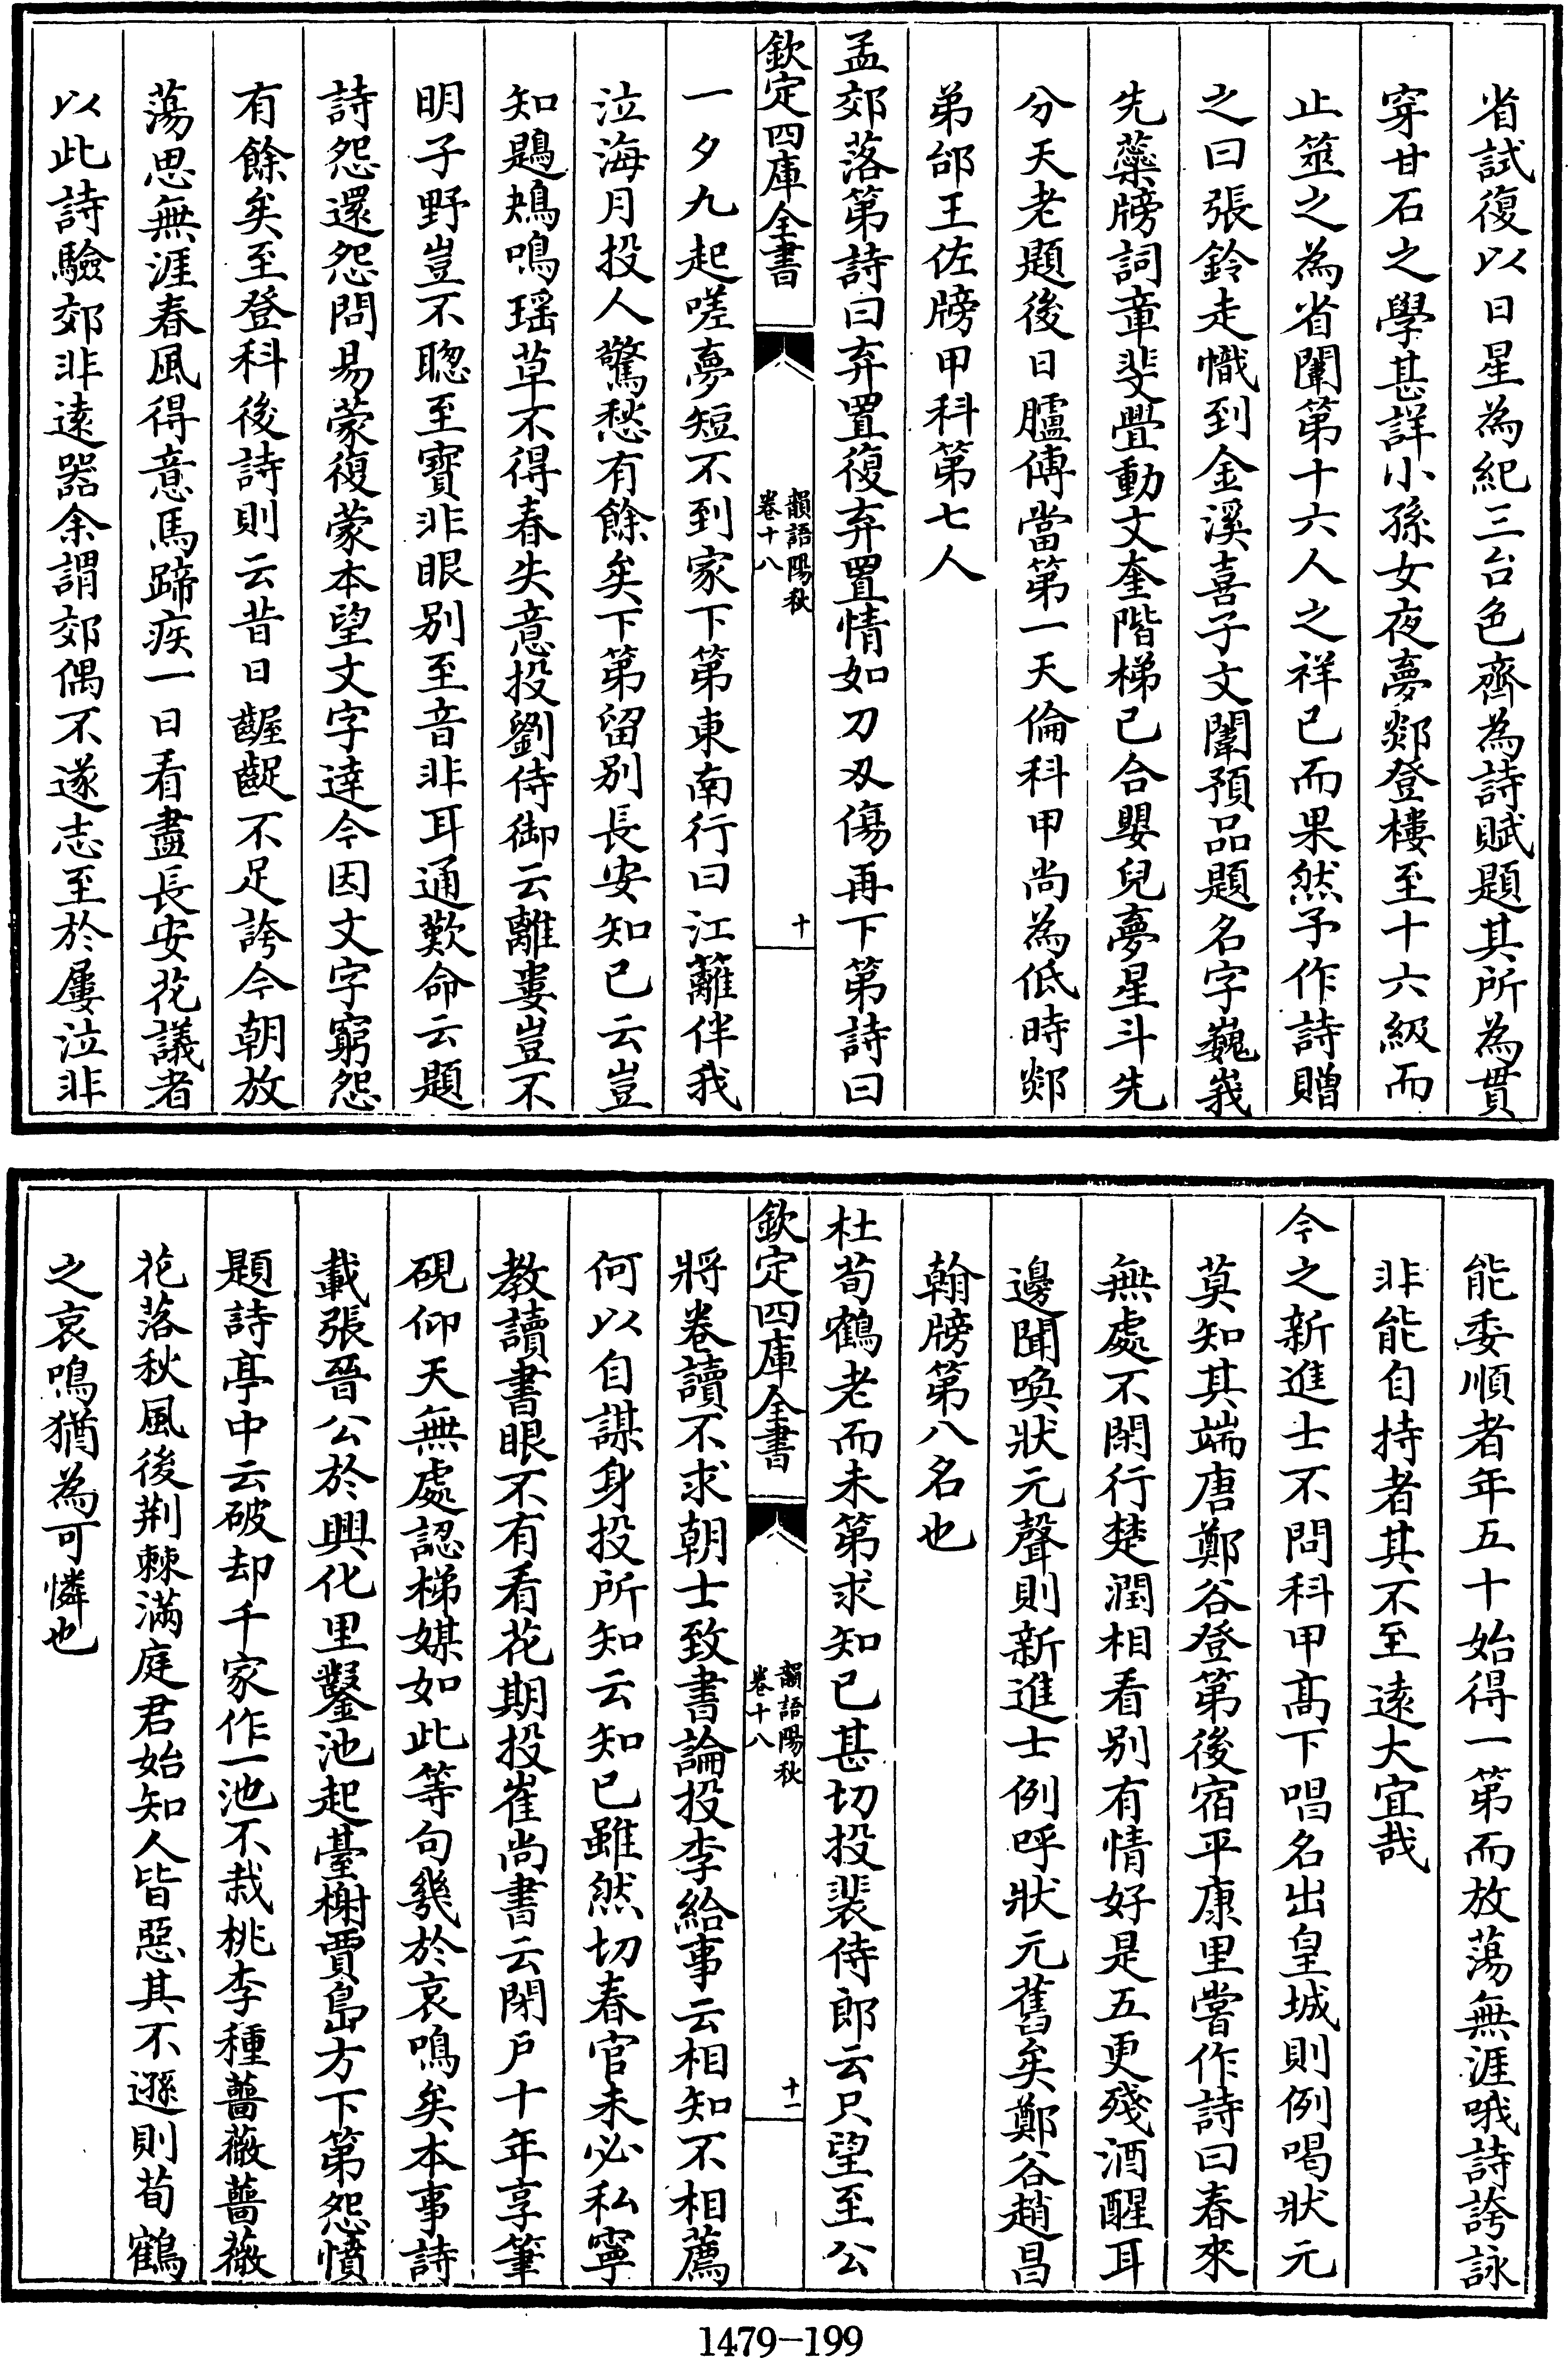 省試復以日星為紀三台色齊為詩賦題其所為貫
穿甘石之學甚詳小孫女夜夢郯登樓至十六級而
止筮之為省闈第十六人之祥已而果然予作詩贈
之曰張鈴走幟到金溪喜子文闈預品題名字巍峩
先蘂牓詞章斐亹動文奎階梯已合嬰兒夢星斗先
分天老題後日臚傳當第一天倫科甲尚為低時郯
弟邰王佐牓甲科第七人
孟郊落第詩曰弃置復弃置情如刀刄傷再下第詩曰
欽定四庫全書
韻語陽秋
卷十八
十
一夕九起嗟夢短不到家下第東南行曰江蘺伴我
泣海月投人驚愁有餘矣下第留别長安知已云豈
知鶗鴂鳴瑶草不得春失意投劉侍御云離婁豈不
明子野豈不聦至寳非眼别至音非耳通歎命云題
詩怨還怨問易蒙復蒙本望文字達今因文字窮怨
有餘矣至登科後詩則云昔日齷齪不足誇今朝放
蕩思無涯春風得意馬蹄疾一日看盡長安花議者
以此詩驗郊非逺器余謂郊偶不遂志至於屢泣非
能委順者年五十始得一第而放蕩無涯哦詩誇詠
非能自持者其不至逺大宜哉
今之新進士不問科甲髙下唱名出皇城則例喝狀元
莫知其端唐鄭谷登第後宿平康里嘗作詩曰春來
無處不閑行楚潤相看别有情好是五更殘酒醒耳
邊聞喚狀元聲則新進士例呼狀元舊矣鄭谷趙昌
翰牓第八名也
杜荀鶴老而未第求知已甚切投裴侍郎云只望至公
欽定四庫全書
韻語陽秋
卷十八
十一
將卷讀不求朝士致書論投李給事云相知不相薦
何以自謀身投所知云知已雖然切春官未必私寧
教讀書眼不有看花期投崔尚書云閉户十年享筆
硯仰天無處認梯媒如此等句幾於哀鳴矣本事詩
載張晉公於興化里鑿池起臺榭賈島方下第怨憤
題詩亭中云破却千家作一池不栽桃李種薔薇薔薇
花落秋風後荆棘滿庭君始知人皆惡其不遜則荀鶴
之哀鳴猶為可憐也
1479-199